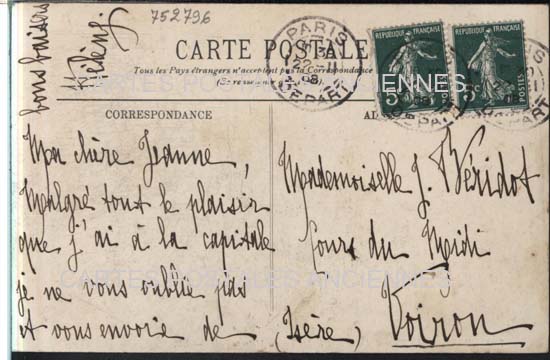 752796
bons baisers
Hélène
CARTE POSTALE
Tous les Pays étrangers n'acceptent pas la Correspondance
CORRESPONDANCE
PARIS
22-11
08
DEPART
REPUBLIQUE FRANÇAISE
5c
POSTES
REPUBLIQUE FRANÇAISE
5c
POSTES
CARTES POSTALES ANCIENNES
Ma chère Jeanne,
Malgré tout le plaisir
que j'ai à la capitale
je ne vous oublie pas
et vous envoie de
Mademoiselle J. Véridot
Cours du Midi
Voiron
(Isère)
CARTES POSTALES ANCIENNES